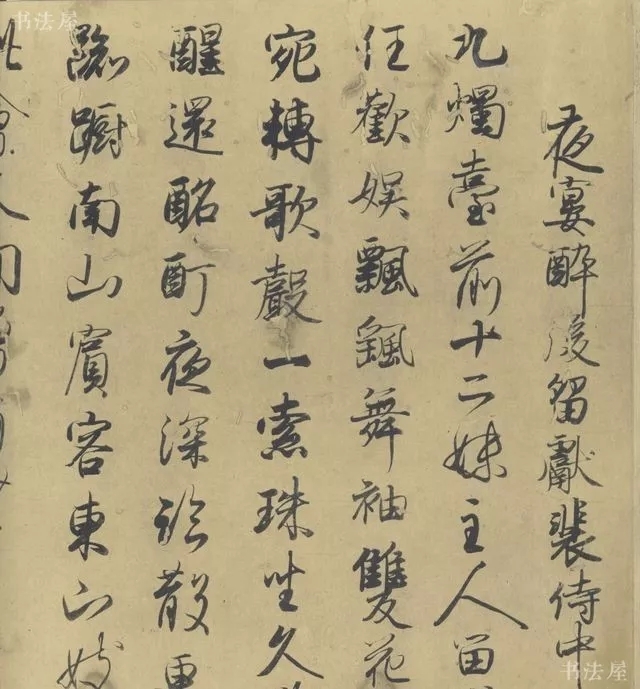 书法屋
夜宴醉後留獻裴侍中
九燭臺前十二姝主人留
任歡娛飄飄舞袖雙花
宛轉歌聲一索珠坐久
醒還酩酊夜深臨散更
踟躕南山賓客東山妓
此會人間
书法屋